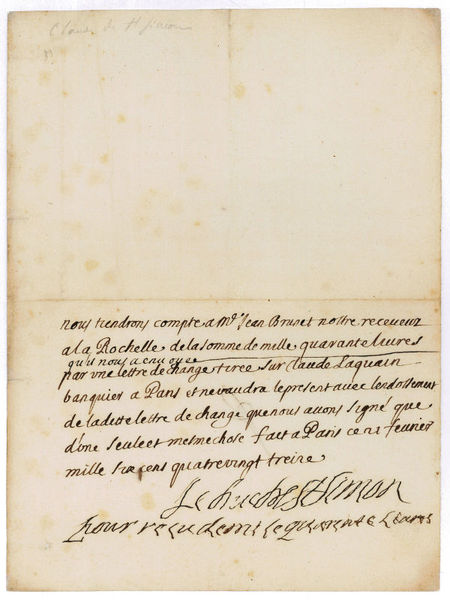 Claude de St Simon
nous tiendrons compte a Mr. Jean Brunet nostre receveur
a la Rochelle de la somme de mille quarante livres
qu'il nous a envoyée
par une lettre de change tiree sur Claude
banquier a Paris et ne vaudra le present avec l'endossement
de la ditte lettre de change que nous avons signé que
d'one seule et mesme chose fait a Paris ce fevrier
mille six cens quatre vingt treize
Le duc de St Simon
pour receu de mil le quarente livres